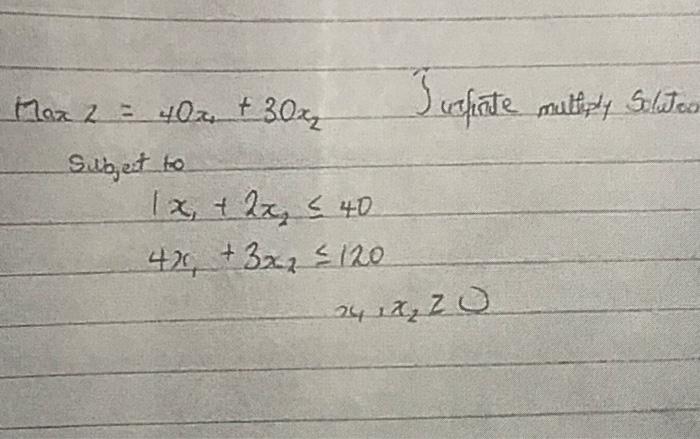 Max Z = 40x₁ + 30x₂ Infinite multiply Solution
Subject to
1x₁ + 2x₂ ≤ 40
4x₁ + 3x₂ ≤ 120
x₁, x₂ ≥ 0